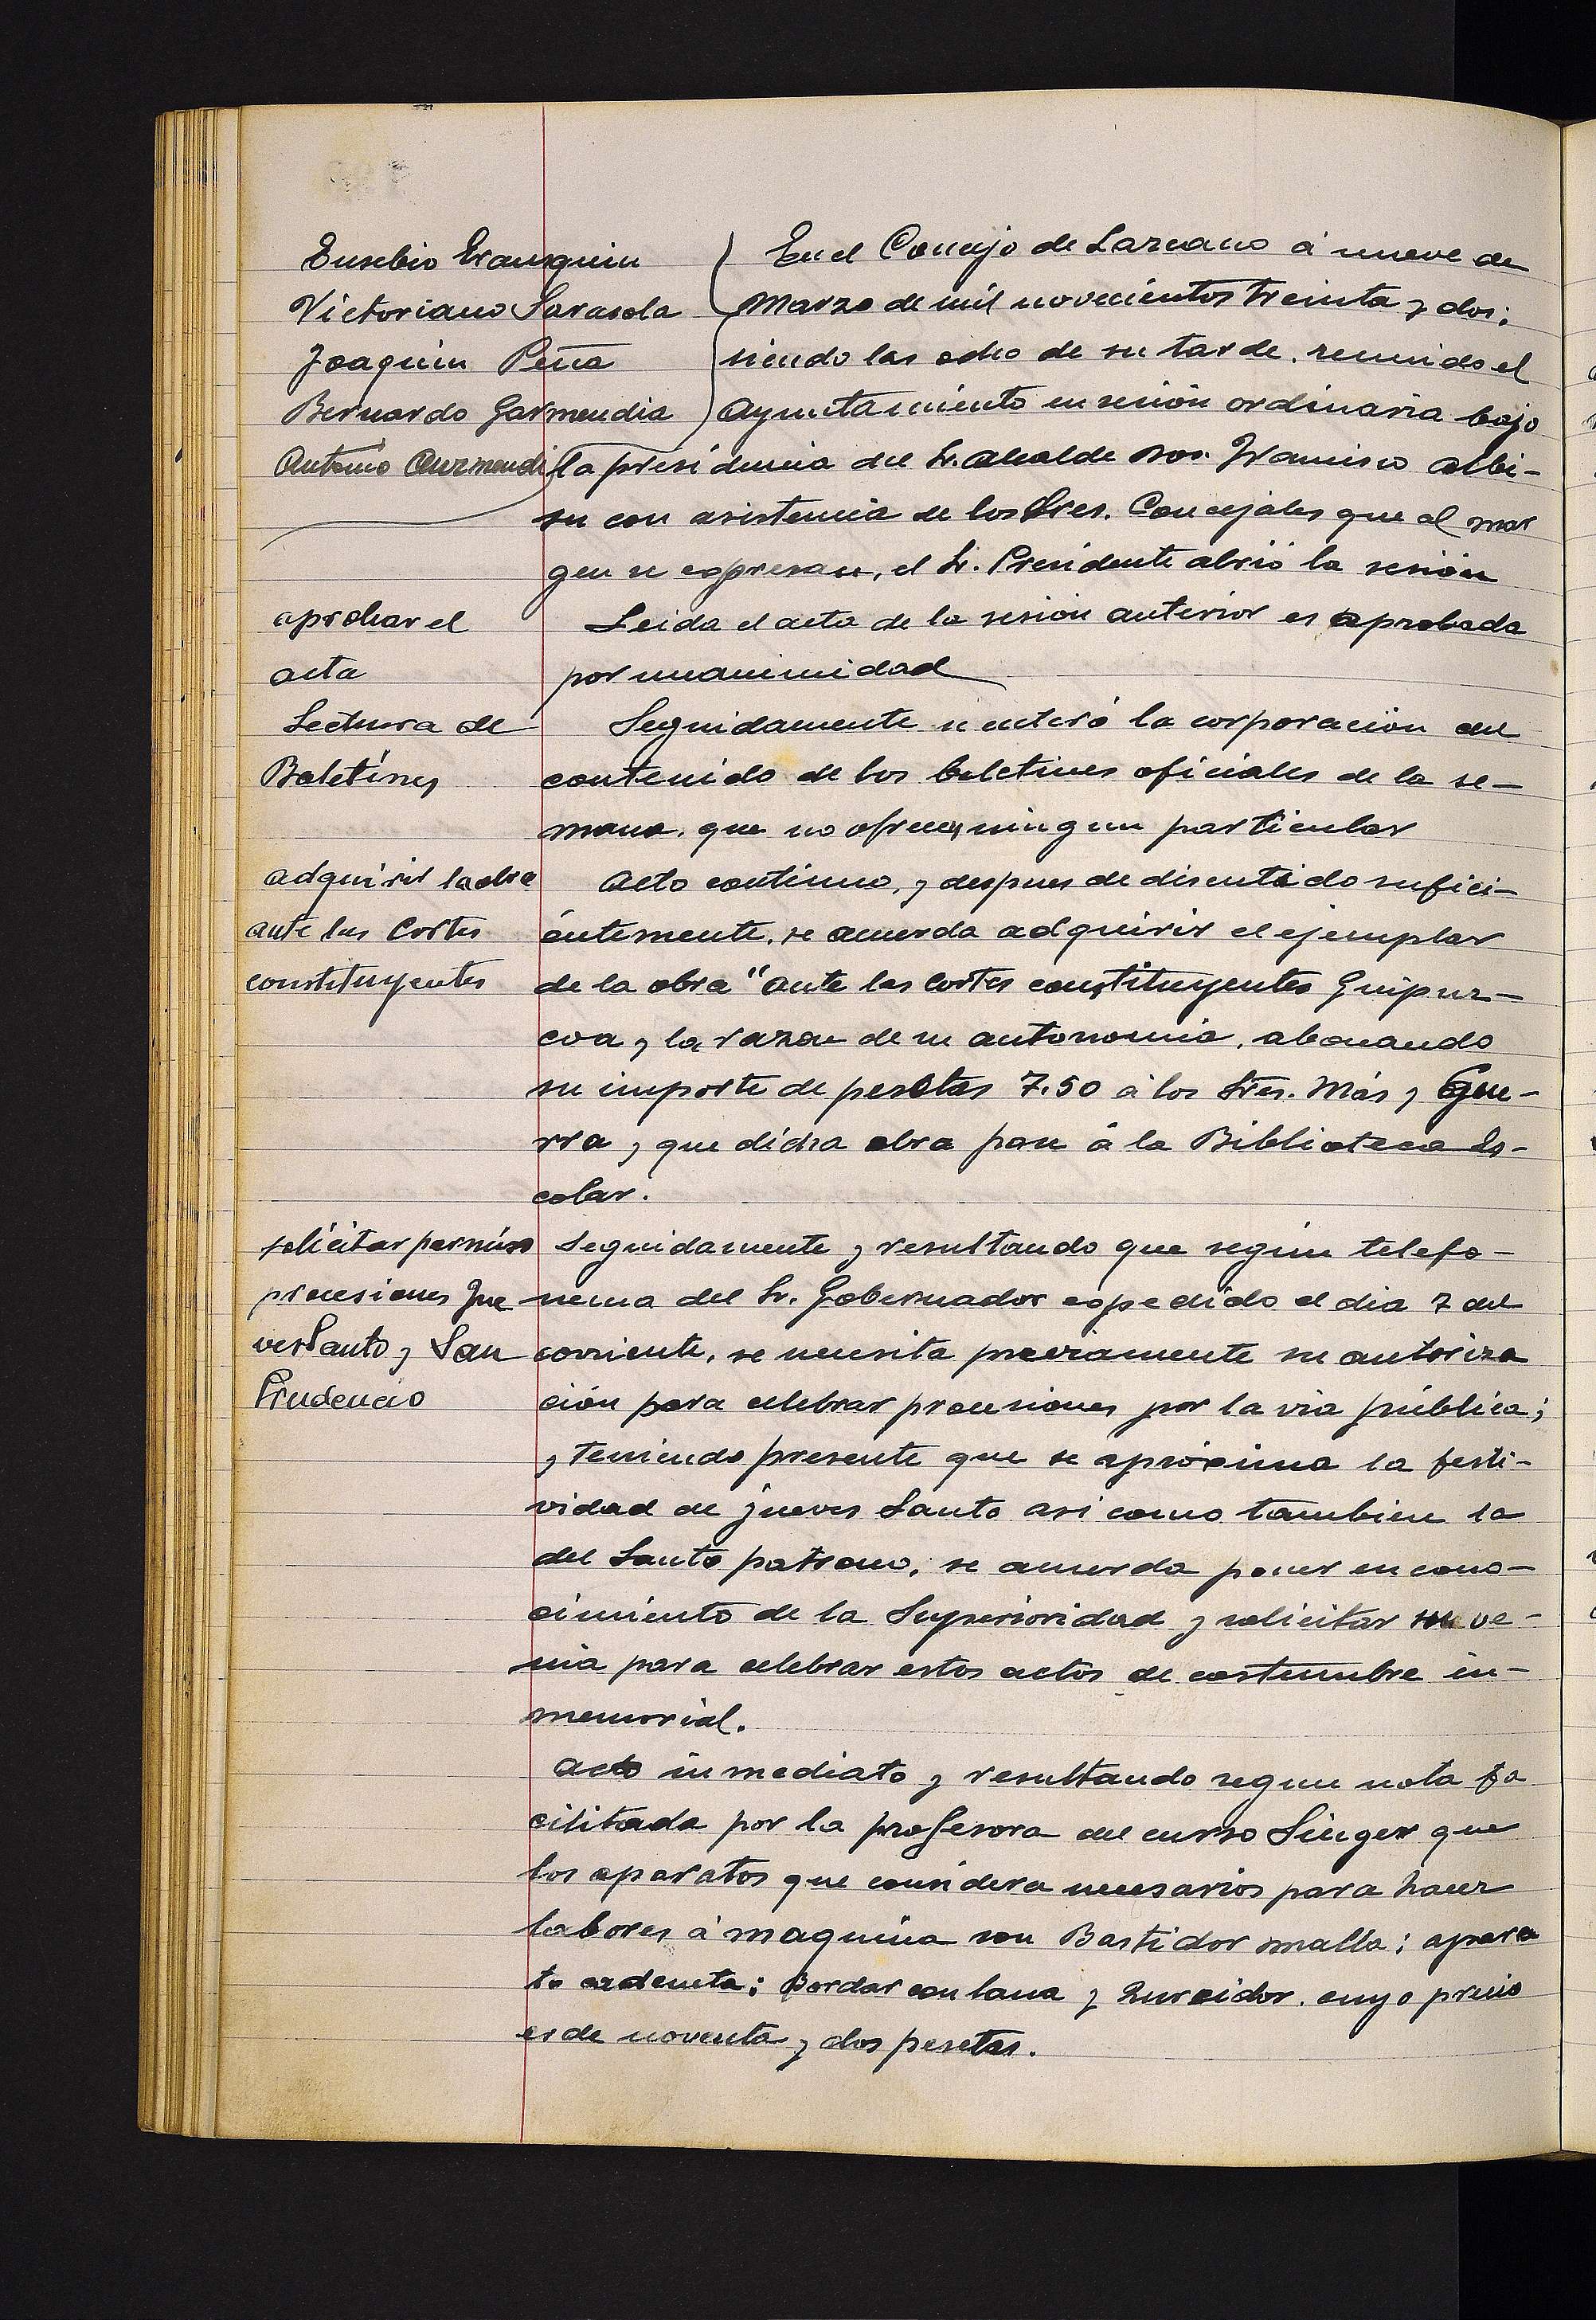 Eusebio Eransquin
Victoriano Sarasola
Joaquin Peña
Bernardo Garmendia
Antonio Aurmendi
En el Concejo de Lazcano á nueve de
Marzo de mil novecientos treinta y dos;
siendo las ocho de su tarde, reunido el
Ayuntamiento en sesión ordinaria bajo
la presidencia del Sr. Alcalde Don Francisco Albi-
su con asistencia de los Sres. Concejales que al mar
gen se expresan, el Sr. Presidente abrió la sesión
aprobar el
acta
Leida el acta de la sesión anterior es aprobada
por unanimidad
Lectura de
Boletines
Seguidamente se enteró la corporación del
contenido de los boletines oficiales de la se-
mana, que no ofrece ningun particular
adquirir la obra
ante las Cortes
constituyentes
Acto continuo, y despues de discutido sufici-
entemente, se acuerda adquirir el ejemplar
de la obra "Ante las Cortes constituyentes Guipuz-
coa y la razon de su autonomia, abonando
su importe de pesetas 7.50 á los Sres. Más y Gue-
rra y que dicha obra pase á la Biblioteca Es-
colar.
solicitar permiso
procesiones Jue
ves Santo y San
Prudencio
Seguidamente y resultando que según telefo-
nema del Sr. Gobernador expedido el dia 7 del
corriente, se necesita previamente su autoriza
ción para celebrar procesiones por la via pública;
y teniendo presente que se apróxima la festi-
vidad de jueves Santo asi como tambien la
del Santo patrono, se acuerda poner en cono-
cimiento de la Superioridad y solicitar su ve-
nia para celebrar estos actos de costumbre in-
memorial.
Acto inmediato y resultando segun nota fa
cilitada por la profesora del curso Singer que
los aparatos que considera necesarios para hacer
labores á maquina son Bastidor malla; apara
to cadeneta; Bordar con lana y Zurcidor, cuyo precio
es de noventa y dos pesetas.